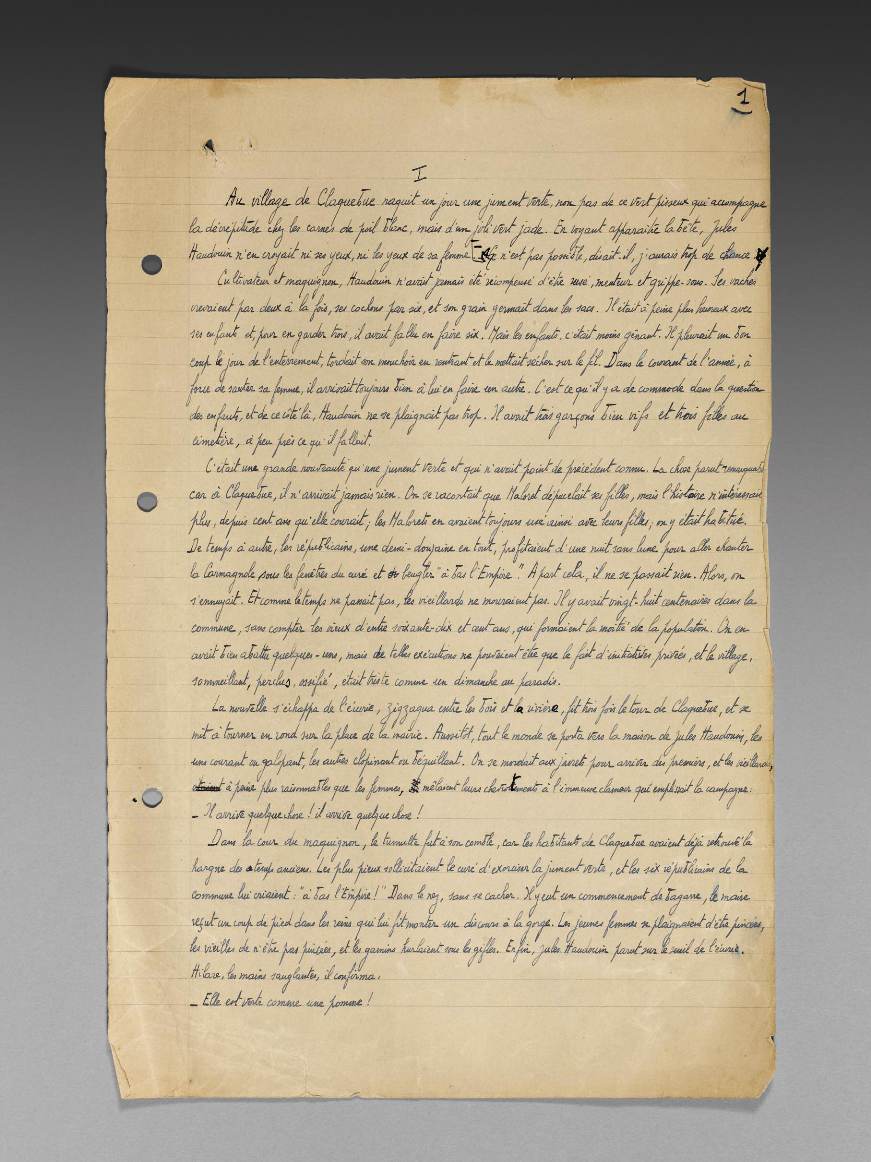 1
I
Au village de Claquebue naquit un jour une jument verte, non pas de ce vert pisseux qui accompagne
la décrépitude chez les carnes de poil blanc, mais d'un joli vert jade. En voyant apparaître la bête, Jules
Haudouin n'en croyait ni ses yeux, ni les yeux de sa femme. Ce n'est pas possible, disait-il, j'aurais trop de chance.
Cultivateur et maquignon, Haudouin n'avait jamais été récompensé d'être rusé, menteur et grippe-sous. Ses vaches
crevaient par deux à la fois, ses cochons par six, et son grain germait dans les sacs. Il était à peine plus heureux avec
ses enfants et, pour en garder trois, il avait fallu en faire six. Mais les enfants, c'était moins gênant. Il pleurait un bon
coup le jour de l'enterrement, tordait son mouchoir en rentrant et le mettait sécher sur le fil. Dans le courant de l'année, à
force de sauter sa femme, il arrivait toujours bien à lui en faire un autre. C'est ce qu'il y a de commode dans la question
des enfants, et de ce côté là, Haudouin ne se plaignait pas trop. Il avait trois garçons bien vifs et trois filles au
cimetière, à peu près ce qu'il fallait.
C'était une grande nouveauté qu'une jument verte et qui n'avait point de précédent connu. La chose parut remarquable
car à Claquebue, il n'arrivait jamais rien. On se racontait que Maloret dépucelait ses filles, mais l'histoire n'intéressait
plus, depuis cent ans qu'elle courait ; les Malorets en avaient toujours usé ainsi avec leurs filles, on y était habitué.
De temps à autre, les républicains, une demi-douzaine en tout, profitaient d'une nuit sans lune pour aller chanter
la Carmagnole sous les fenêtres du curé et beugler "à bas l'Empire". A part cela, il ne se passait rien. Alors, on
s'ennuyait. Et comme le temps ne passait pas, les vieillards ne mouraient pas. Il y avait vingt-huit centenaires dans la
commune, sans compter les vieux d'entre soixante-dix et cent ans, qui formaient la moitié de la population. On en
avait bien abattu quelques-uns, mais de telles exécutions ne pouvaient être que le fait d'initiatives privées, et le village,
sommeillant, perclus, ossifié, était triste comme un dimanche au paradis.
La nouvelle s'échappa de l'écurie, zigzagua entre les bois et la rivière, fit trois fois le tour de Claquebue, et se
mit à tourner en rond sur la place de la mairie. Aussitôt, tout le monde se porta vers la maison de Jules Haudouin, les
uns courant ou galopant, les autres clopinant ou béquillant. On se mordait aux jarrets pour arriver des premiers, et les vieillards,
à peine plus raisonnables que les femmes, mêlaient leurs chevrotements à l'immense clameur qui emplissait la campagne :
- Il arrive quelque chose ! il arrive quelque chose !
Dans la cour du maquignon, le tumulte fut à son comble, car les habitants de Claquebue avaient déjà retrouvé la
hargne des temps anciens. Les plus pieux sollicitaient le curé d'exorciser la jument verte, et les six républicains de la
commune lui criaient : "à bas l'Empire !" Dans le nez, sans se cacher. Il y eut un commencement de bagarre, le maire
reçut un coup de pied dans les reins qui lui fit monter un discours à la gorge. Les jeunes femmes se plaignaient d'être pincées,
les vieilles de n'être pas pincées, et les gamins hurlaient sous les gifles. Enfin, Jules Haudouin parut sur le seuil de l'écurie.
Hilare, les mains sanglantes, il confirma :
- Elle est verte comme une pomme !